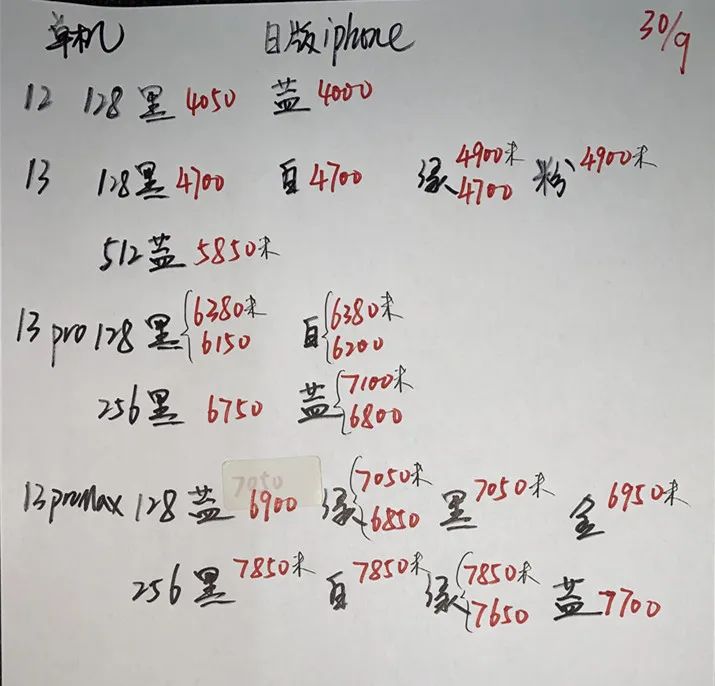 单机 日版iphone 30/9
12 128黑4050 蓝4000
13 128黑4700 白4700 绿4900未 4700 粉4900未
512蓝5850未
13pro128黑6380未 6150 白6380未 6200
256黑 6750 蓝7100未 6800
13promax128蓝 6900 绿7050未 6850 黑7050未 金6950未
256黑7850未 白7850未 绿7850未 7650 蓝7700